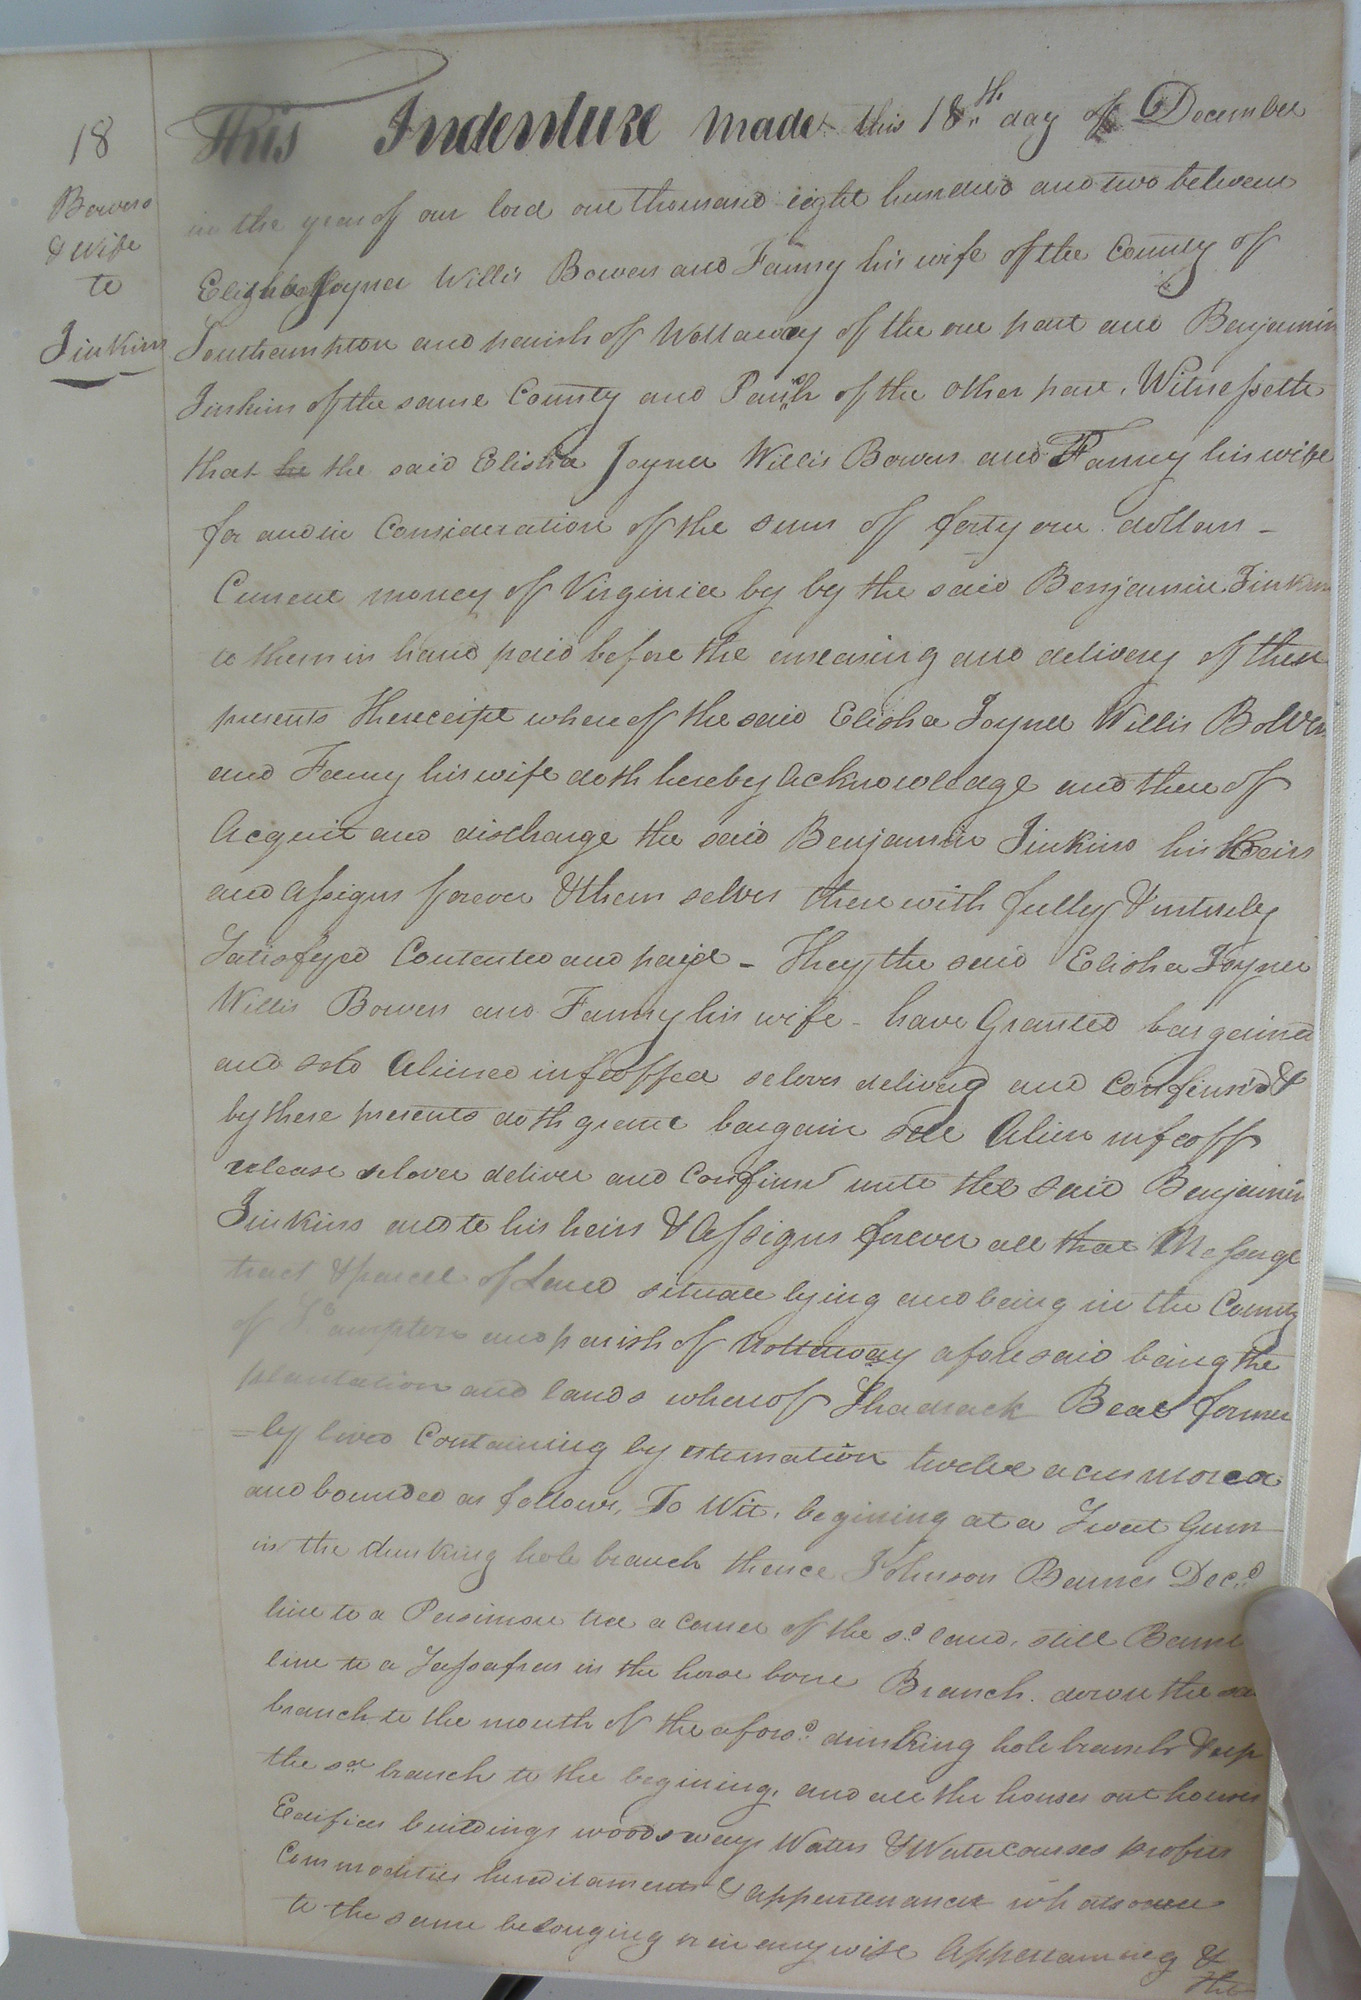 18
Bowers
& Wife
to
Jinkins
This Indenture made this 18th day of December
in the year of our lord one thousand eight hundred and two between
Elisha Joyner Willis Bowers and Fanny his wife of the County of
Southampton and parish of Nottaway of the one part and Benjamin
Jinkins of the same County and Parish of the other part, Witnesseth
that he the said Elisha Joyner Willis Bowers and Fanny his wife
for and in Consideration of the sum of forty one dollars -
Current money of Virginia by by the said Benjamin Jinkins
to them in hand paid before the ensealing and delivery of these
presents the receipt where of the said Elisha Joyner Willis Bowers
and Fanny his wife doth hereby Acknowledge and there of
Acquit and discharge the said Benjamin Jinkins his heirs
and assigns forever & them selves there with fully & intirely
Satisfyed Contented and paid - They the said Elisha Joyner
Willis Bowers and Fanny his wife - have Granted bargained
and sold Aliened infeoffed delivered and Confirmed &
by these presents doth grant bargain sell Alien infeoff
release deliver and Confirm unto the said Benjamin
Jinkins and to his heirs & Assigns forever all that Messuage
tract & parcel of Land situate lying and being in the County
of So ampton and parish of Nottaway afore said being the
plantation and lands whereof Shadrack Beal former
=ly lived Containing by estimation twelve acres more
and bounded as follows, To Wit, begining at a Sweet Gum
in the drinking hole branch thence Johnson Barnes Decd
line to a Persimon tree a Corner of the sd land, still Barnes
line to a Sassafras in the horse bone Branch. down the sd
branch to the mouth of the aforsd drinking hole branch & up
the sd branch to the begining, and all the houses out houses
Edifices buildings woods ways Waters & Watercourses profits
Commodities hereditaments & appurtenances whatsoever
to the same belonging or in any wise Appertaining &
the